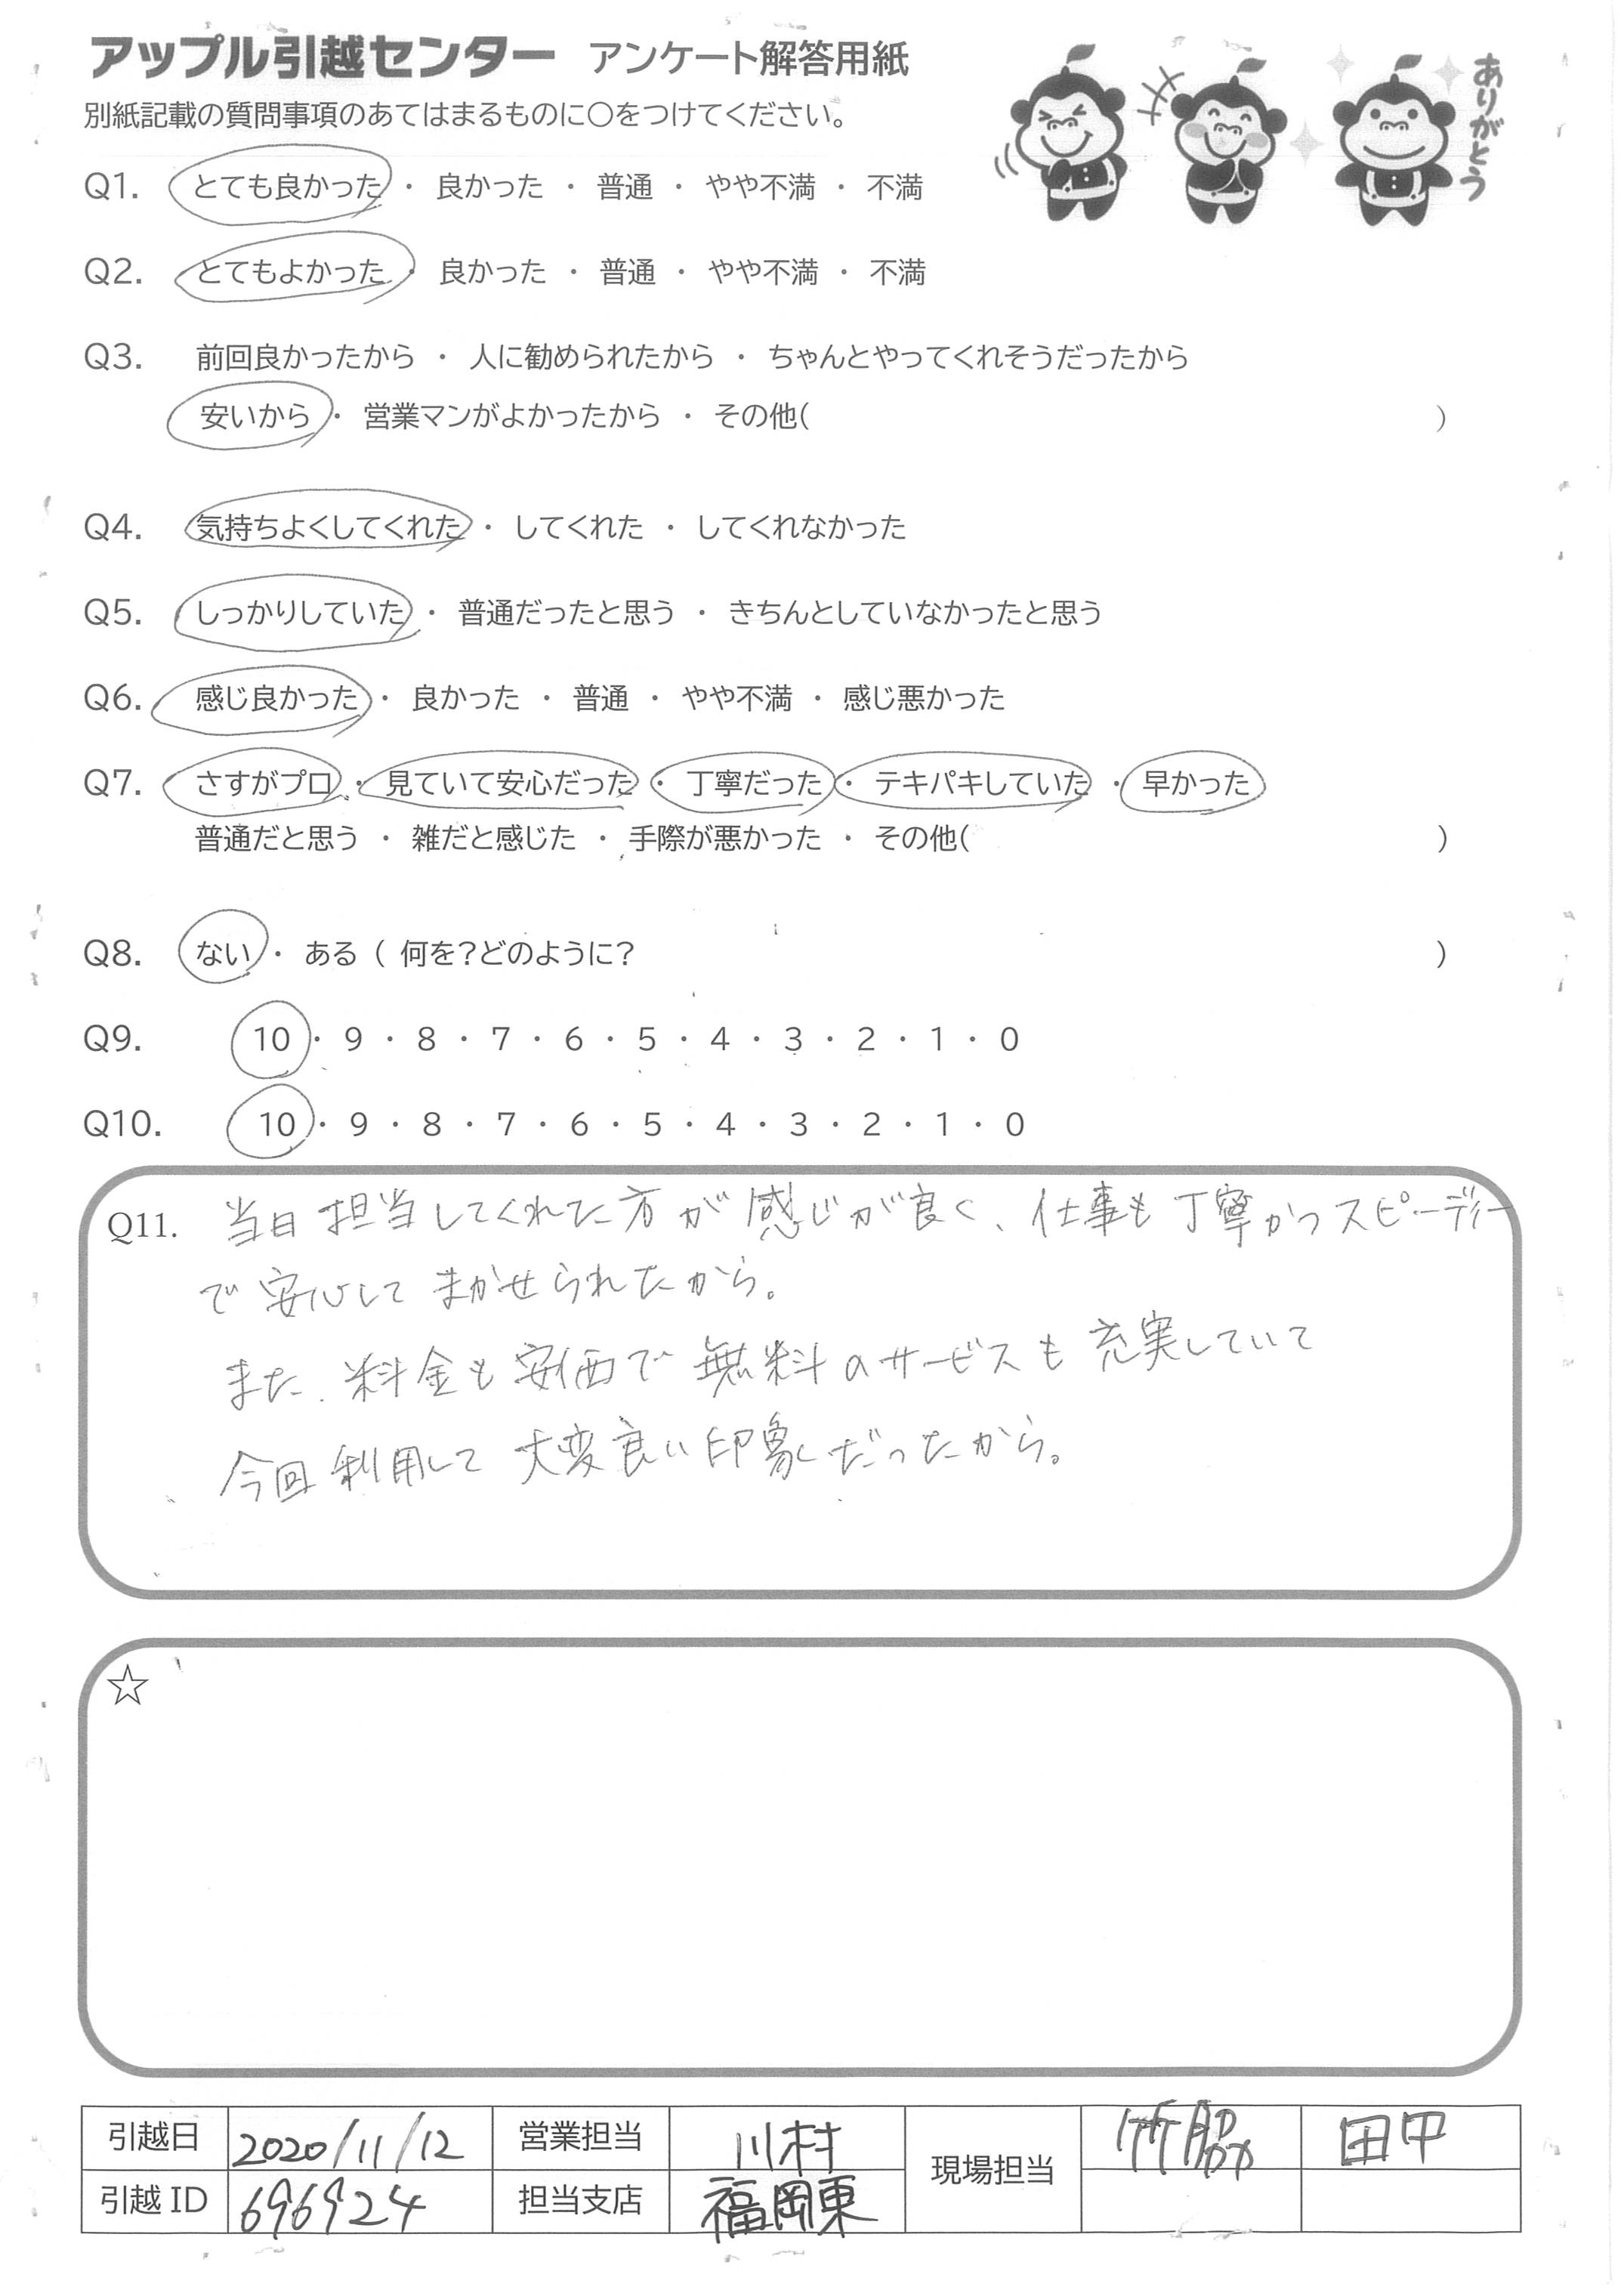 アップル引越センター アンケート解答用紙
別紙記載の質問事項のあてはまるものに〇をつけてください。
ありがとう
Q1. とても良かった ・ 良かった ・ 普通 ・ やや不満 ・ 不満
Q2. とてもよかった ・ 良かった ・ 普通 ・ やや不満 ・ 不満
Q3. 前回良かったから ・ 人に勧められたから ・ ちゃんとやってくれそうだったから
安いから ・ 営業マンがよかったから ・ その他( )
Q4. 気持ちよくしてくれた ・ してくれた ・ してくれなかった
Q5. しっかりしていた ・ 普通だったと思う ・ きちんとしていなかったと思う
Q6. 感じ良かった ・ 良かった ・ 普通 ・ やや不満 ・ 感じ悪かった
Q7. さすがプロ ・ 見ていて安心だった ・ 丁寧だった ・ テキパキしていた ・ 早かった
普通だと思う ・ 雑だと感じた ・ 手際が悪かった ・ その他( )
Q8. ない ・ ある ( 何を?どのように? )
Q9. 10 ・ 9 ・ 8 ・ 7 ・ 6 ・ 5 ・ 4 ・ 3 ・ 2 ・ 1 ・ 0
Q10. 10 ・ 9 ・ 8 ・ 7 ・ 6 ・ 5 ・ 4 ・ 3 ・ 2 ・ 1 ・ 0
Q11. 当日担当してくれた方が感じが良く、仕事も丁寧かつスピーディー
で安心してまかせられたから。
また、料金も安価で無料のサービスも充実していて
今回利用して大変良い印象だったから。
☆
引越日 2020/11/12 営業担当 川村 現場担当 竹脇 田中
引越ID 696924 担当支店 福岡東